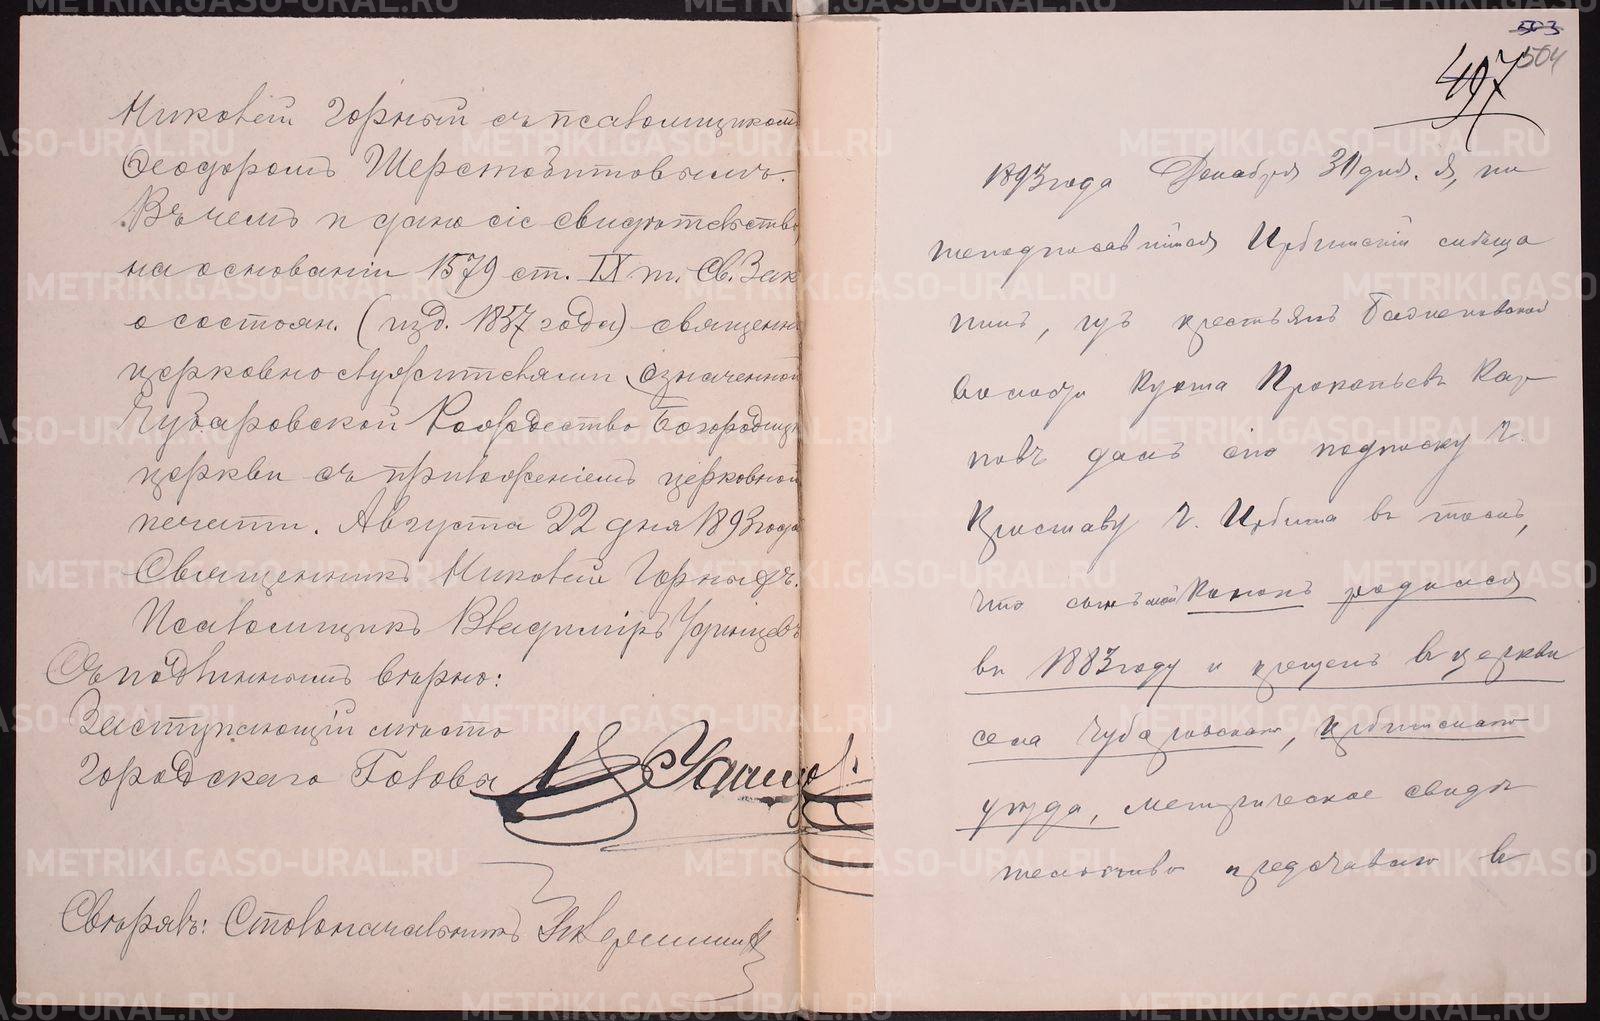 Миковій Горный съ псаломщикомъ
Ѳеодоромъ Шерстобитовымъ.
Въ чемъ и дано сіе свидѣтельство
на основаніи 1579 ст. IX т. Св. Зак
о состоян. (изд. 1857 года) священно
церковнослужителями означенной
Чубаровской Рождество-Богородицк
церкви съ приложеніемъ церковной
печати. Августа 22 дня 1893 года
Священникъ Миковій Горныхъ.
Псаломщикъ Владиміръ Удинцевъ
Съ подлиннымъ вѣрно:
Заступающій мѣсто
Городскаго Головы
Свѣрялъ: Столоначальникъ
503
504
497
1893 года Декабря 31 дня. Я, ни
женодписавшійся Ирбитскій
изъ крестьянъ
волости Кузма Прокопьевъ Кар
повъ далъ сію подписку Г.
Приставу Г. Ирбита въ томъ,
что сынъ мой Кононъ родился
въ 1883 году и крещенъ въ церкви
села Чубаровскаго, Ирбитскаго
уѣзда, метрическое свидѣ
тельство представлю въ
METRIKI.GASO-URAL.RU